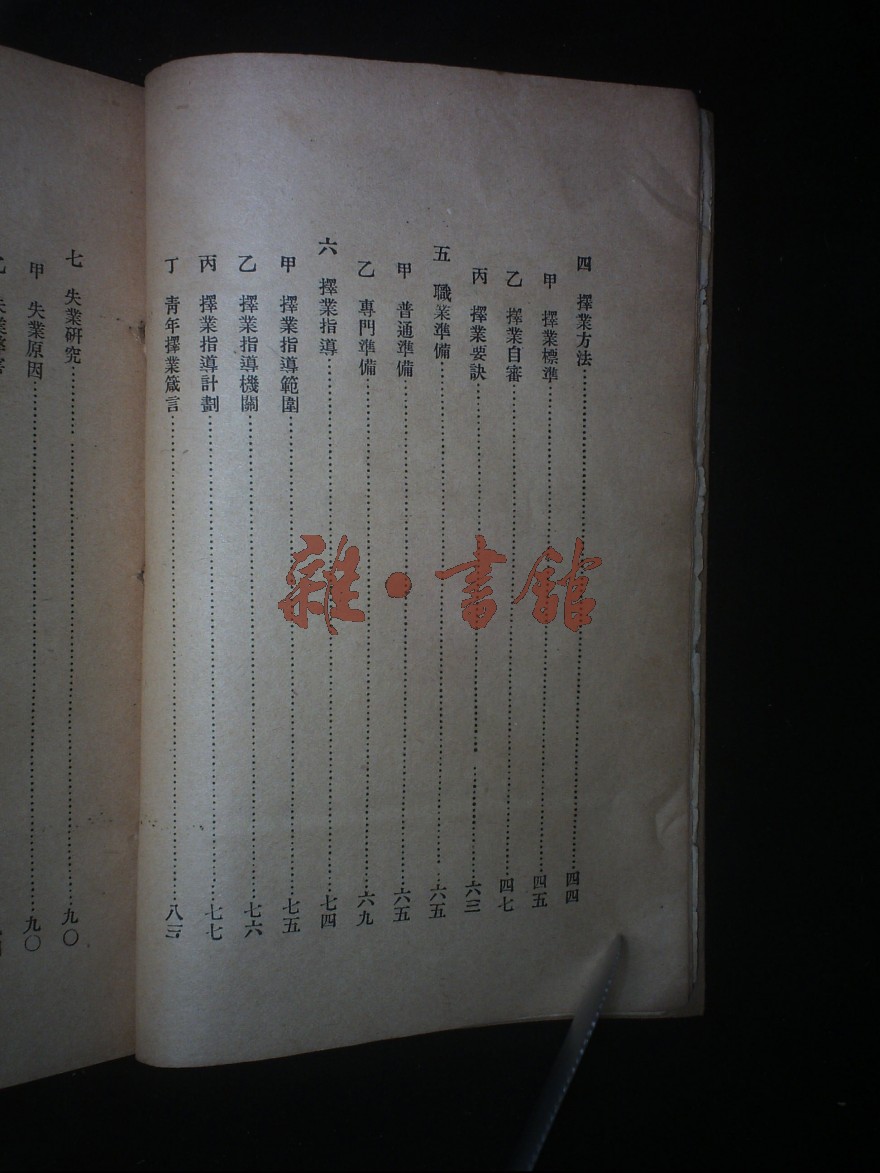 四　擇業方法……四四
甲　擇業標準……四五
乙　擇業自審……四七
丙　擇業要訣……六三
五　職業準備……六五
甲　普通準備……六五
乙　專門準備……六九
六　擇業指導……七四
甲　擇業指導範圍……七五
乙　擇業指導機關……七六
丙　擇業指導計劃……七七
丁　青年擇業箴言……八三
七　失業研究……九〇
甲　失業原因……九〇
雜·書館